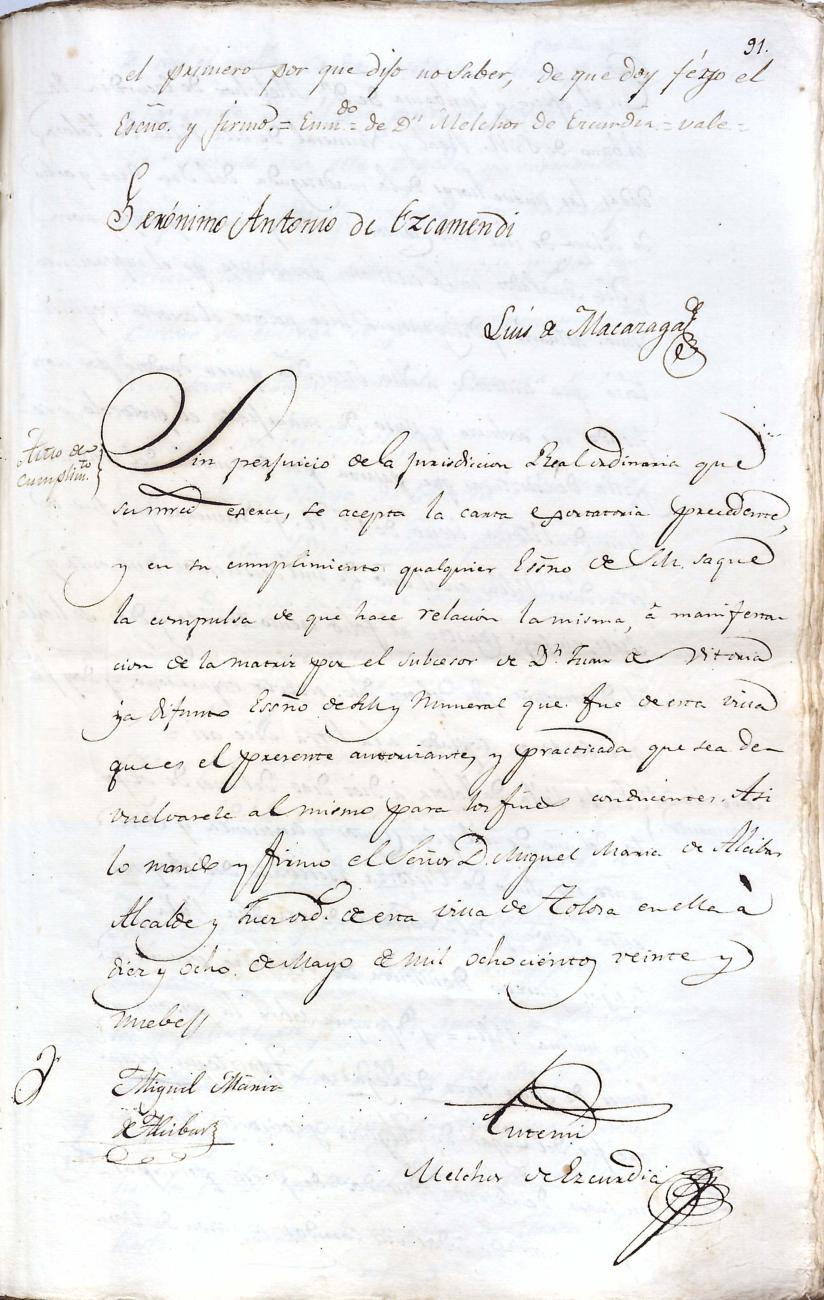 91.
el primero por que dijo no saber, de que doy fé yo el
Esčno. y firmó. = Enmdo = de Dn Melchor de Ezcurdia = vale =
Gerónimo Antonio de Ezcamendi
Luis de Macazaga
Auto de
cumplimto
Sin perjuicio de la jurisdicion Real ordinaria que
su mrcd exerce, se acepta la carta exortatoria precedente,
y en su cumplimiento qualquier Esčno de S.M. saque
la compulsa de que hace relacion la misma, á manifesta-
cion de la matriz por el subcesor de Dn Juan de Vitoria
ya difunto Esčno de S.M. y Numeral que fue de esta villa
que es el presente autorizante, y practicada que sea de-
vuelvasele al mismo para los fines conducentes. Asi
lo mando y firmo el Señor D. Miguel Maria de Alcibar
Alcalde y Juez ord.o de esta villa de Tolosa en ella á
diez y ocho de Mayo de mil ochocientos veinte y
nuebe //
Miguel Maria
de Alcibar
Antemi
Melchor de Ezcurdia